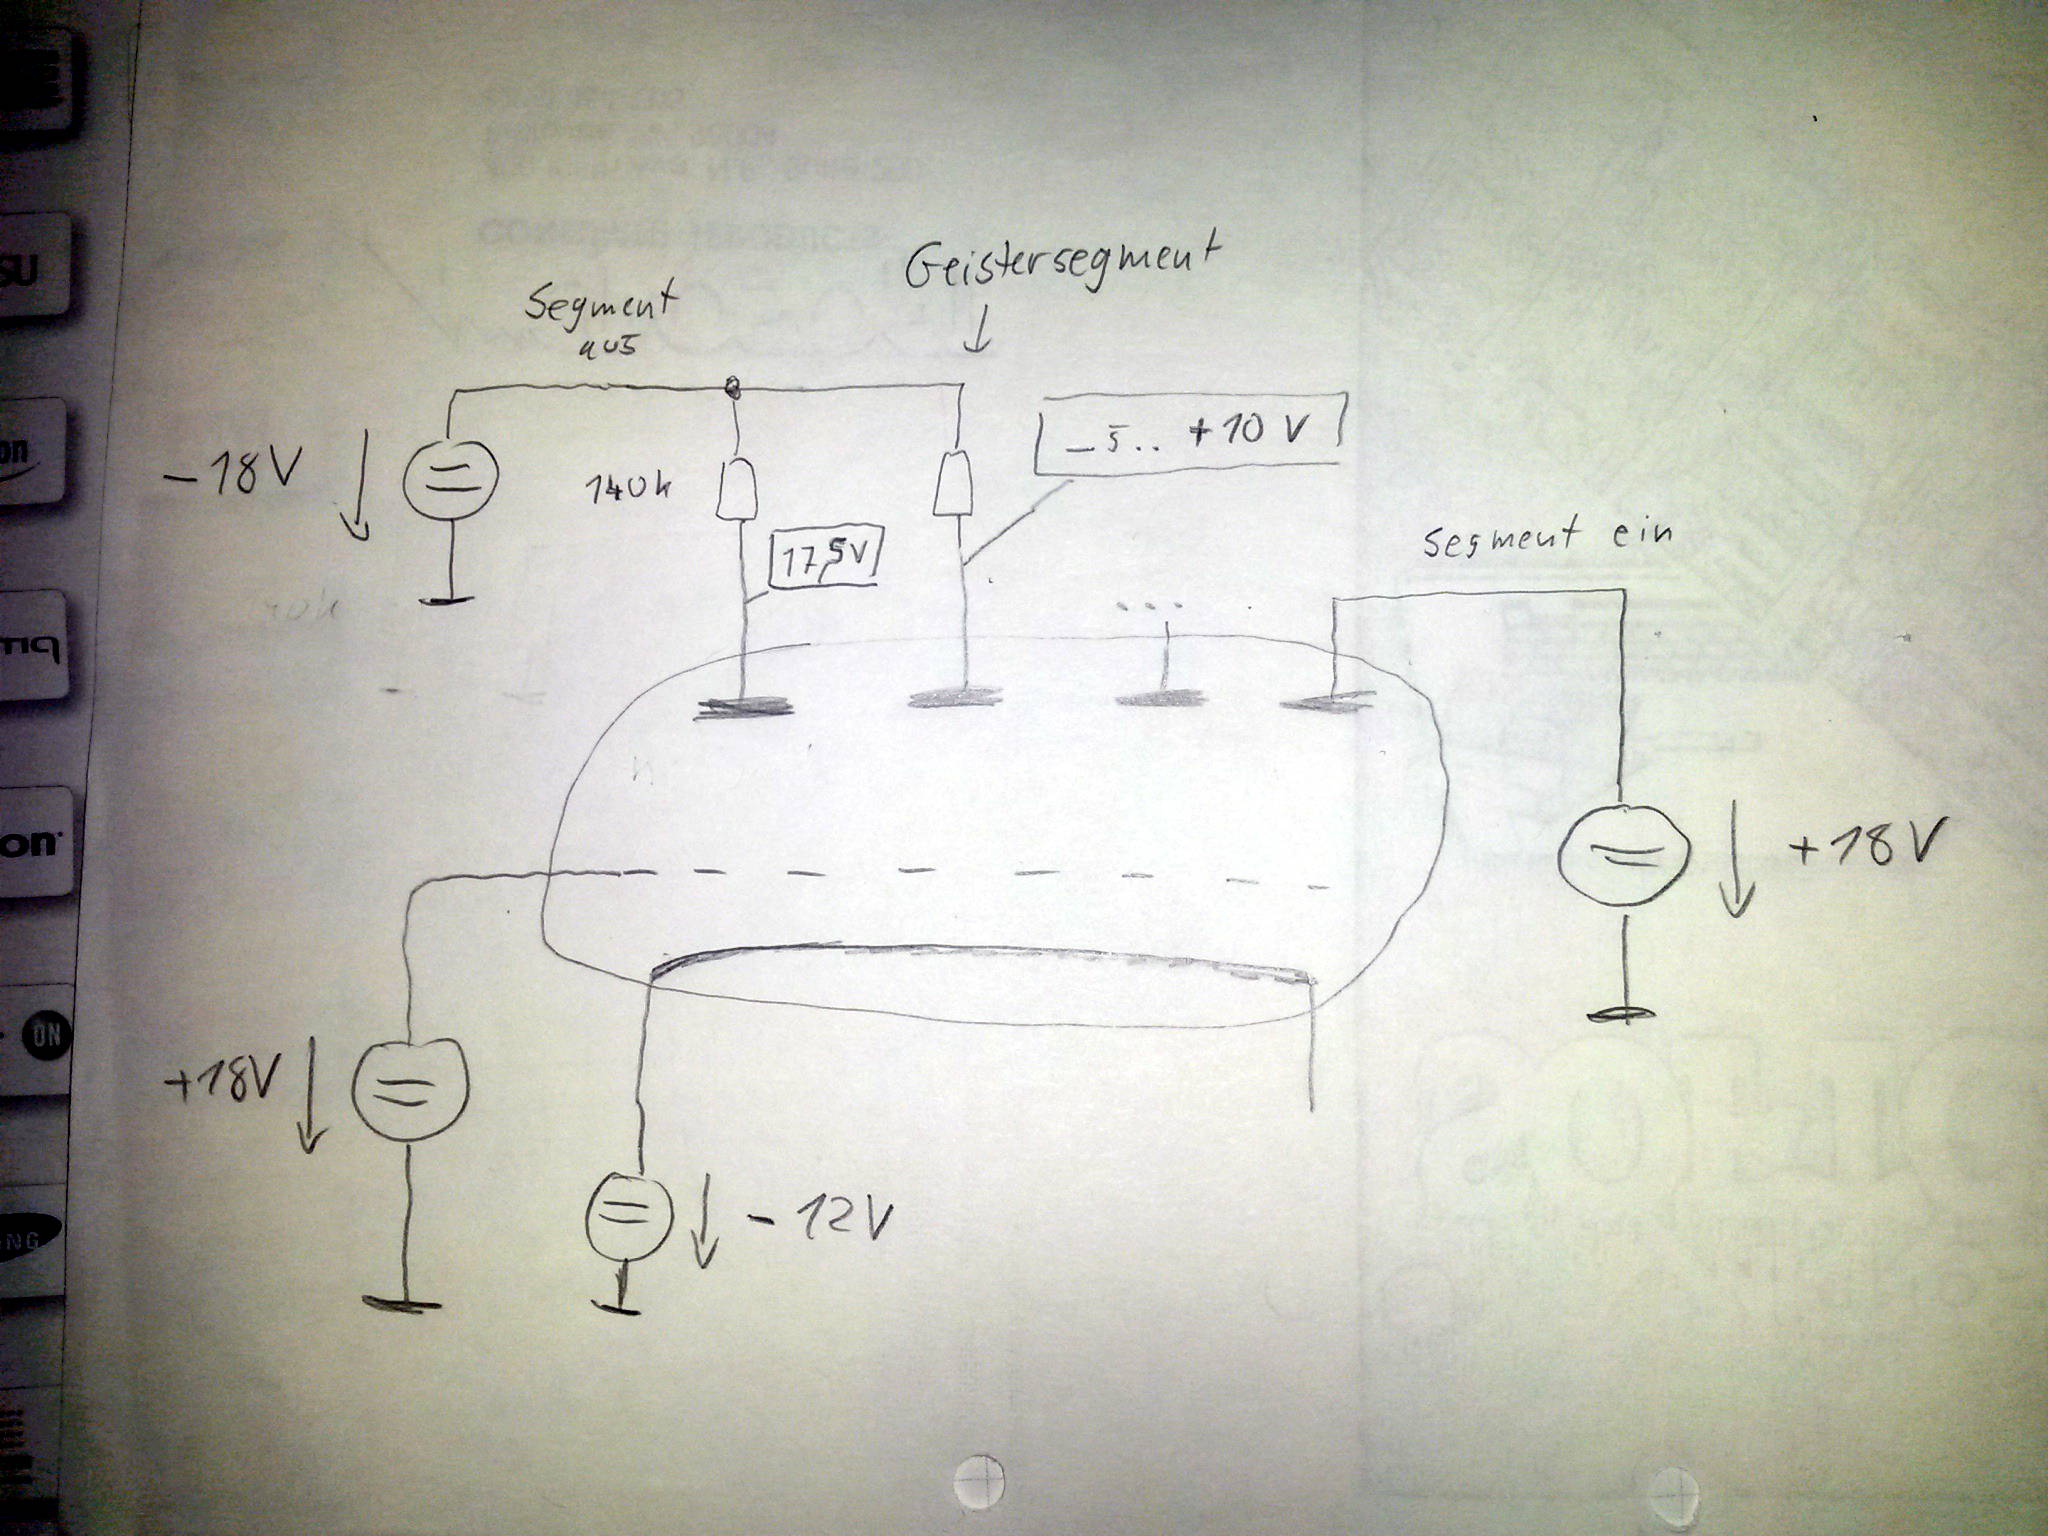 Geistersegment
Segment
aus
-18V
140k
17,5V
-5.. +10 V
segment ein
...
+18V
+18V
-12V
SU
on
on
ON
NG